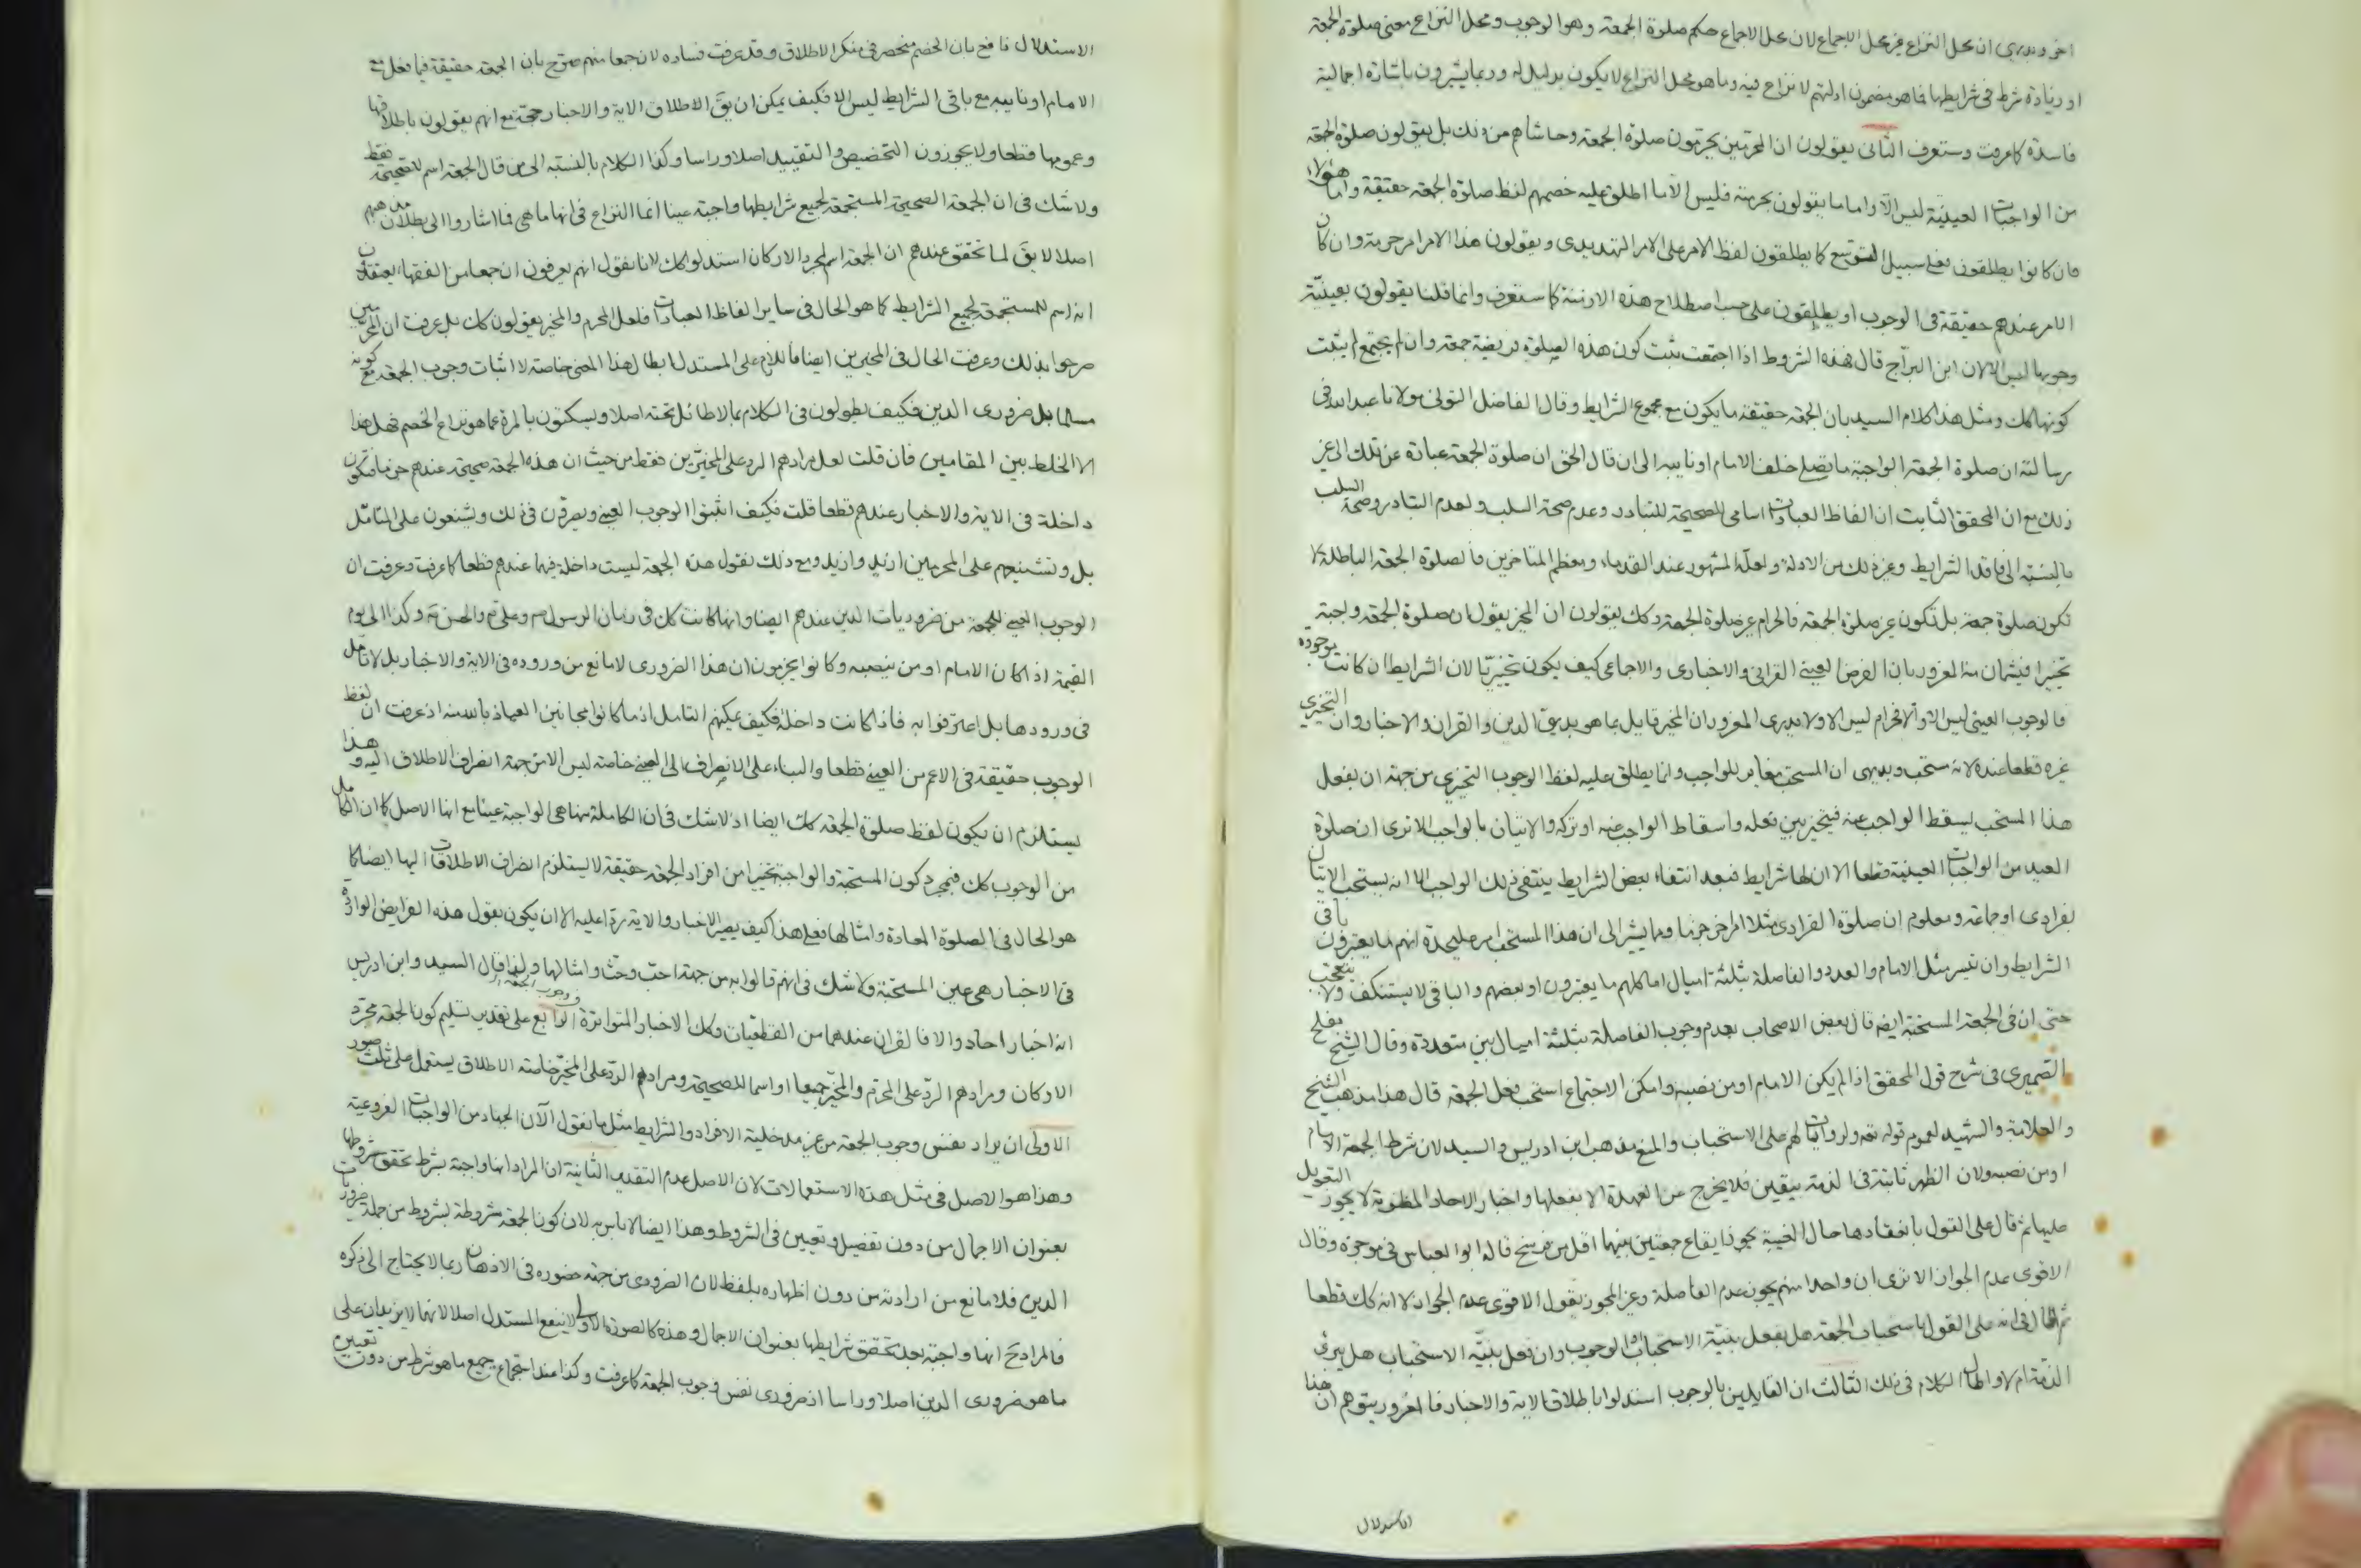 اخر وبديهى ان محل النزاع غير محل الاجماع لان محل الاجماع حكم صلوة الجمعة وهو الوجوب ومحل النزاع معنى صلوة الجمعة
او زيادة شرط فى شرايطها فما هو مضمون ادلتهم لا نزاع فيه وما هو محل النزاع لا يكون بدليل له وربما يشيرون باشارة اجمالية
فاسدة كما عرفت وستعرف الثانى يقولون ان المحرمين يحرمون صلوة الجمعة وحاشاهم من ذلك بل يقولون صلوة الجمعة
من الواجبات العينية ليس الا واما ما يقولون بحرمته فليس الا ما اطلق عليه خصمهم لفظ صلوة الجمعة حقيقة واما هؤلاء
فان كانوا يطلقون فعلى سبيل التوسع كما يطلقون لفظ الامر على الامر التهديدى ويقولون هذا الامر امر حرمة وان كان
الامر عندهم حقيقة فى الوجوب او يطلقون على حسب اصطلاح هذه الازمنة كما ستعرف وانما قلنا يقولون بعينية
وجوبها ليس الا لان ابن البراج قال فهذه الشروط اذا اجتمعت ثبت كون هذه الصلوة فريضة جمعة وان لم يجتمع لم يثبت
كونها كك ومثل هذا كلام السيد بان الجمعة حقيقة ما يكون مع مجموع الشرايط وقال الفاضل التونى مولانا عبد الله فى
رسالته ان صلوة الجمعة الواجبة ما يصلى خلف الامام او نايبه الى ان قال الحق ان صلوة الجمعة عبارة عن تلك الى غير
ذلك مع ان المحقق الثابت ان الفاظ العبادات اسامى للصحيحة للتبادر وعدم صحة السلب ولعدم التبادر وصحة السلب
بالنسبة الى فاقد الشرايط وغير ذلك من الادلة ولعله المشهور عند القدماء ومعظم المتاخرين فالصلوة الجمعة الباطلة لا
تكون صلوة جمعة بل تكون غير صلوة الجمعة فالحرام غير صلوة الجمعة وكك يقولون ان المخير يقول ان صلوة الجمعة واجبة
تخييرا فيشمان منه المغرور بان الفرض العينى القرانى والاخبارى والاجماعى كيف يكون تخييريا لان الشرايط ان كانت موجودة
فالوجوب العينى ليس الا والا فحرام ليس الا ولا يدرى المغرور ان المخير قايل بما هو بديهى الدين والقران والاخبار وان التخييرى
غيره قطعا عنده لانه مستحب وبديهى ان المستحب مغاير للواجب وانما يطلق عليه لفظ الوجوب التخييرى من جهة ان بفعل
هذا المستحب يسقط الواجب عنه فيتخير بين فعله واسقاط الواجب عنه او تركه والاتيان بالواجب الا ترى ان صلوة
العيد من الواجبات العينية قطعا الا ان لها شرايط فبعد انتفاء بعض الشرايط ينتفى ذلك الواجب الا انه يستحب الاتيان
بفرادى او جماعة ومعلوم ان صلوة الفرادى مثلا امر اخر جزما ومما يشير الى ان هذا المستحب امر عليحدة انهم ما يعتبرون باقى
الشرايط وان تيسر مثل الامام والعدد والفاصلة بثلثة اميال اما كلهم ما يعتبرون او بعضهم والباقى لا يستنكف ولا يتعجب
حتى ان فى الجمعة المستحبة ايضا قال بعض الاصحاب بعدم وجوب الفاصلة بثلثة اميال بين متعددة وقال الشيخ مفلح
الصيمرى فى شرح قول المحقق اذا لم يكن الامام او من نصبه وامكن الاجتماع استحب فعل الجمعة قال هذا مذهب الشيخ
والعلامة والشهيد لعموم قوله تعه ولروايات لهم على الاستحباب والمنع مذهب ابن ادريس والسيد لان شرط الجمعة الامام
او من نصبه ولان الظهر ثابتة فى الذمة بيقين فلا يخرج عن العهدة الا بفعلها واخبار الاحاد المظنونة لا يجوز التعويل
عليها ثم قال على القول بانعقادها حال الغيبة يجوز ايقاع جمعتين بينهما اقل من فرسخ قاله ابو العباس فى موجزه وقال
الاقوى عدم الجواز الا ترى ان واحدا منهم يجوز عدم الفاصلة وغير المجوز يقول الاقوى عدم الجواز لا انه كك قطعا
ثم اطال فى انه على القول باستحباب الجمعة هل يفعل بنية الاستحباب او الوجوب وان فعل بنية الاستحباب هل يبرئ
الذمة ام لا واطال الكلام فى ذلك الثالث ان القايلين بالوجوب استدلوا باطلاق الاية والاخبار فالمغرور يتوهم ان هذا
الاستدلال
الاستدلال نافع بان الخصم منحصر فى منكر الاطلاق وقد عرفت فساده لان جمعا منهم صرح بان الجمعة حقيقة فيما فعل مع
الامام او نايبه مع باقى الشرايط ليس الا فكيف يمكن ان يق الاطلاق الاية والاخبار حجة مع انهم يقولون باطلاقها
وعمومها قطعا ولا يجوزون التخصيص والتقييد اصلا وراسا وكذا الكلام بالنسبة الى من قال الجمعة اسم للصحيحة فقط
ولا شك فى ان الجمعة الصحيحة المستجمعة لجميع شرايطها واجبة عينا انما النزاع فى انها ما هى فما اشاروا الى بطلان مذهبهم
اصلا لا يق لما تحقق عندهم ان الجمعة اسم لمجرد الاركان استدلوا كك لانا نقول انهم يعرفون ان جمعا من الفقهاء يعتقدون
انه اسم للمستجمعة لجميع الشرايط كما هو الحال فى ساير الفاظ العبادات فلعل المحرم والمخير يقولون كك بل عرفت ان المحرمين
صرحوا بذلك وعرفت الحال فى المخيرين ايضا فاللازم على المستدل ابطال هذا المعنى خاصة لا اثبات وجوب الجمعة مع كونه
مسلما بل ضرورى الدين فكيف يطولون فى الكلام بما لا طائل تحته اصلا ويسكتون بالمرة عما هو نزاع الخصم فهل هذا
الا الخلط بين المقامين فان قلت لعل مرادهم الرد على المخيرين فقط من حيث ان هذه الجمعة صحيحة عندهم جزما فتكون
داخلة فى الاية والاخبار عندهم قطعا قلت فكيف اثبتوا الوجوب العينى ويصرون فى ذلك ويشنعون على المتامل
بل وتشنيعهم على المحرمين ازيد وازيد ومع ذلك نقول هذه الجمعة ليست داخلة فيهما عندهم قطعا كما عرفت وعرفت ان
الوجوب العينى للجمعة من ضروريات الدين عندهم ايضا وانها كانت كك فى زمان الرسول ص وعلى ع والحسن ع وكذا الى يوم
القيمة اذا كان الامام او من ينصبه وكانوا يجزمون ان هذا الضرورى لا مانع من وروده فى الاية والاخبار بل لا تامل
فى ورودها بل اعترفوا به فاذا كانت داخلة فكيف يمكنهم التامل اذ ما كانوا مجانين العياذ بالله منه اذ عرفت ان لفظ
الوجوب حقيقة فى الاعم من العينى قطعا والبناء على الانصراف الى العينى خاصة ليس الا من جهة انصراف الاطلاق اليه وهذا
يستلزم ان يكون لفظ صلوة الجمعة كك ايضا اذ لا شك فى ان الكاملة منها هى الواجبة عينا مع انها الاصل كما ان الكامل
من الوجوب كك فبمجرد كون المستحبة والواجبة تخييرا من افراد الجمعة حقيقة لا يستلزم انصراف الاطلاقات اليها ايضا كما
هو الحال فى الصلوة المعادة وامثالها فعلى هذا كيف يصير الاخبار والاية ردا عليه الا ان يكون يقول هذه الفرايض الواردة
فى الاخبار هى عين المستحبة ولا شك فى انهم قالوا به من جهة احب وحث وامثالها ولذا قال السيد وابن ادريس
انه اخبار احاد والا فالقران عندهما من القطعيات وكك الاخبار المتواترة الرابع على تقدير تسليم كون الجمعة مجرد
الاركان ومرادهم الرد على المحرم والمخير جميعا او اسما للصحيحة ومرادهم الرد على المخير خاصة الاطلاق يستعمل على ثلث صور
الاولى ان يراد نفس وجوب الجمعة من غير مدخلية الافراد والشرايط مثل ما نقول الآن الجهاد من الواجبات الفروعية
وهذا هو الاصل فى مثل هذه الاستعمالات لان الاصل عدم التقدير الثانية ان المراد انها واجبة بشرط تحقق شروطها
بعنوان الاجمال من دون تفصيل وتعيين فى الشروط وهذا ايضا لا باس به لان كون الجمعة مشروطة بشروط من جملة ضروريات
الدين فلا مانع من ارادته من دون اظهاره بلفظ لان الضرورى من جهة حضوره فى الاذهان ربما لا يحتاج الى ذكره
فالمراد ح انها واجبة بعد تحقق شرايطها بعنوان الاجمال وهذه كالصورة الاولى لا ينفع المستدل اصلا لانهما لا يزيدان على
ما هو ضرورى الدين اصلا وراسا اذ ضرورى نفس وجوب الجمعة كما عرفت وكذا عند اجتماع جميع ما هو شرط من دون تعيين